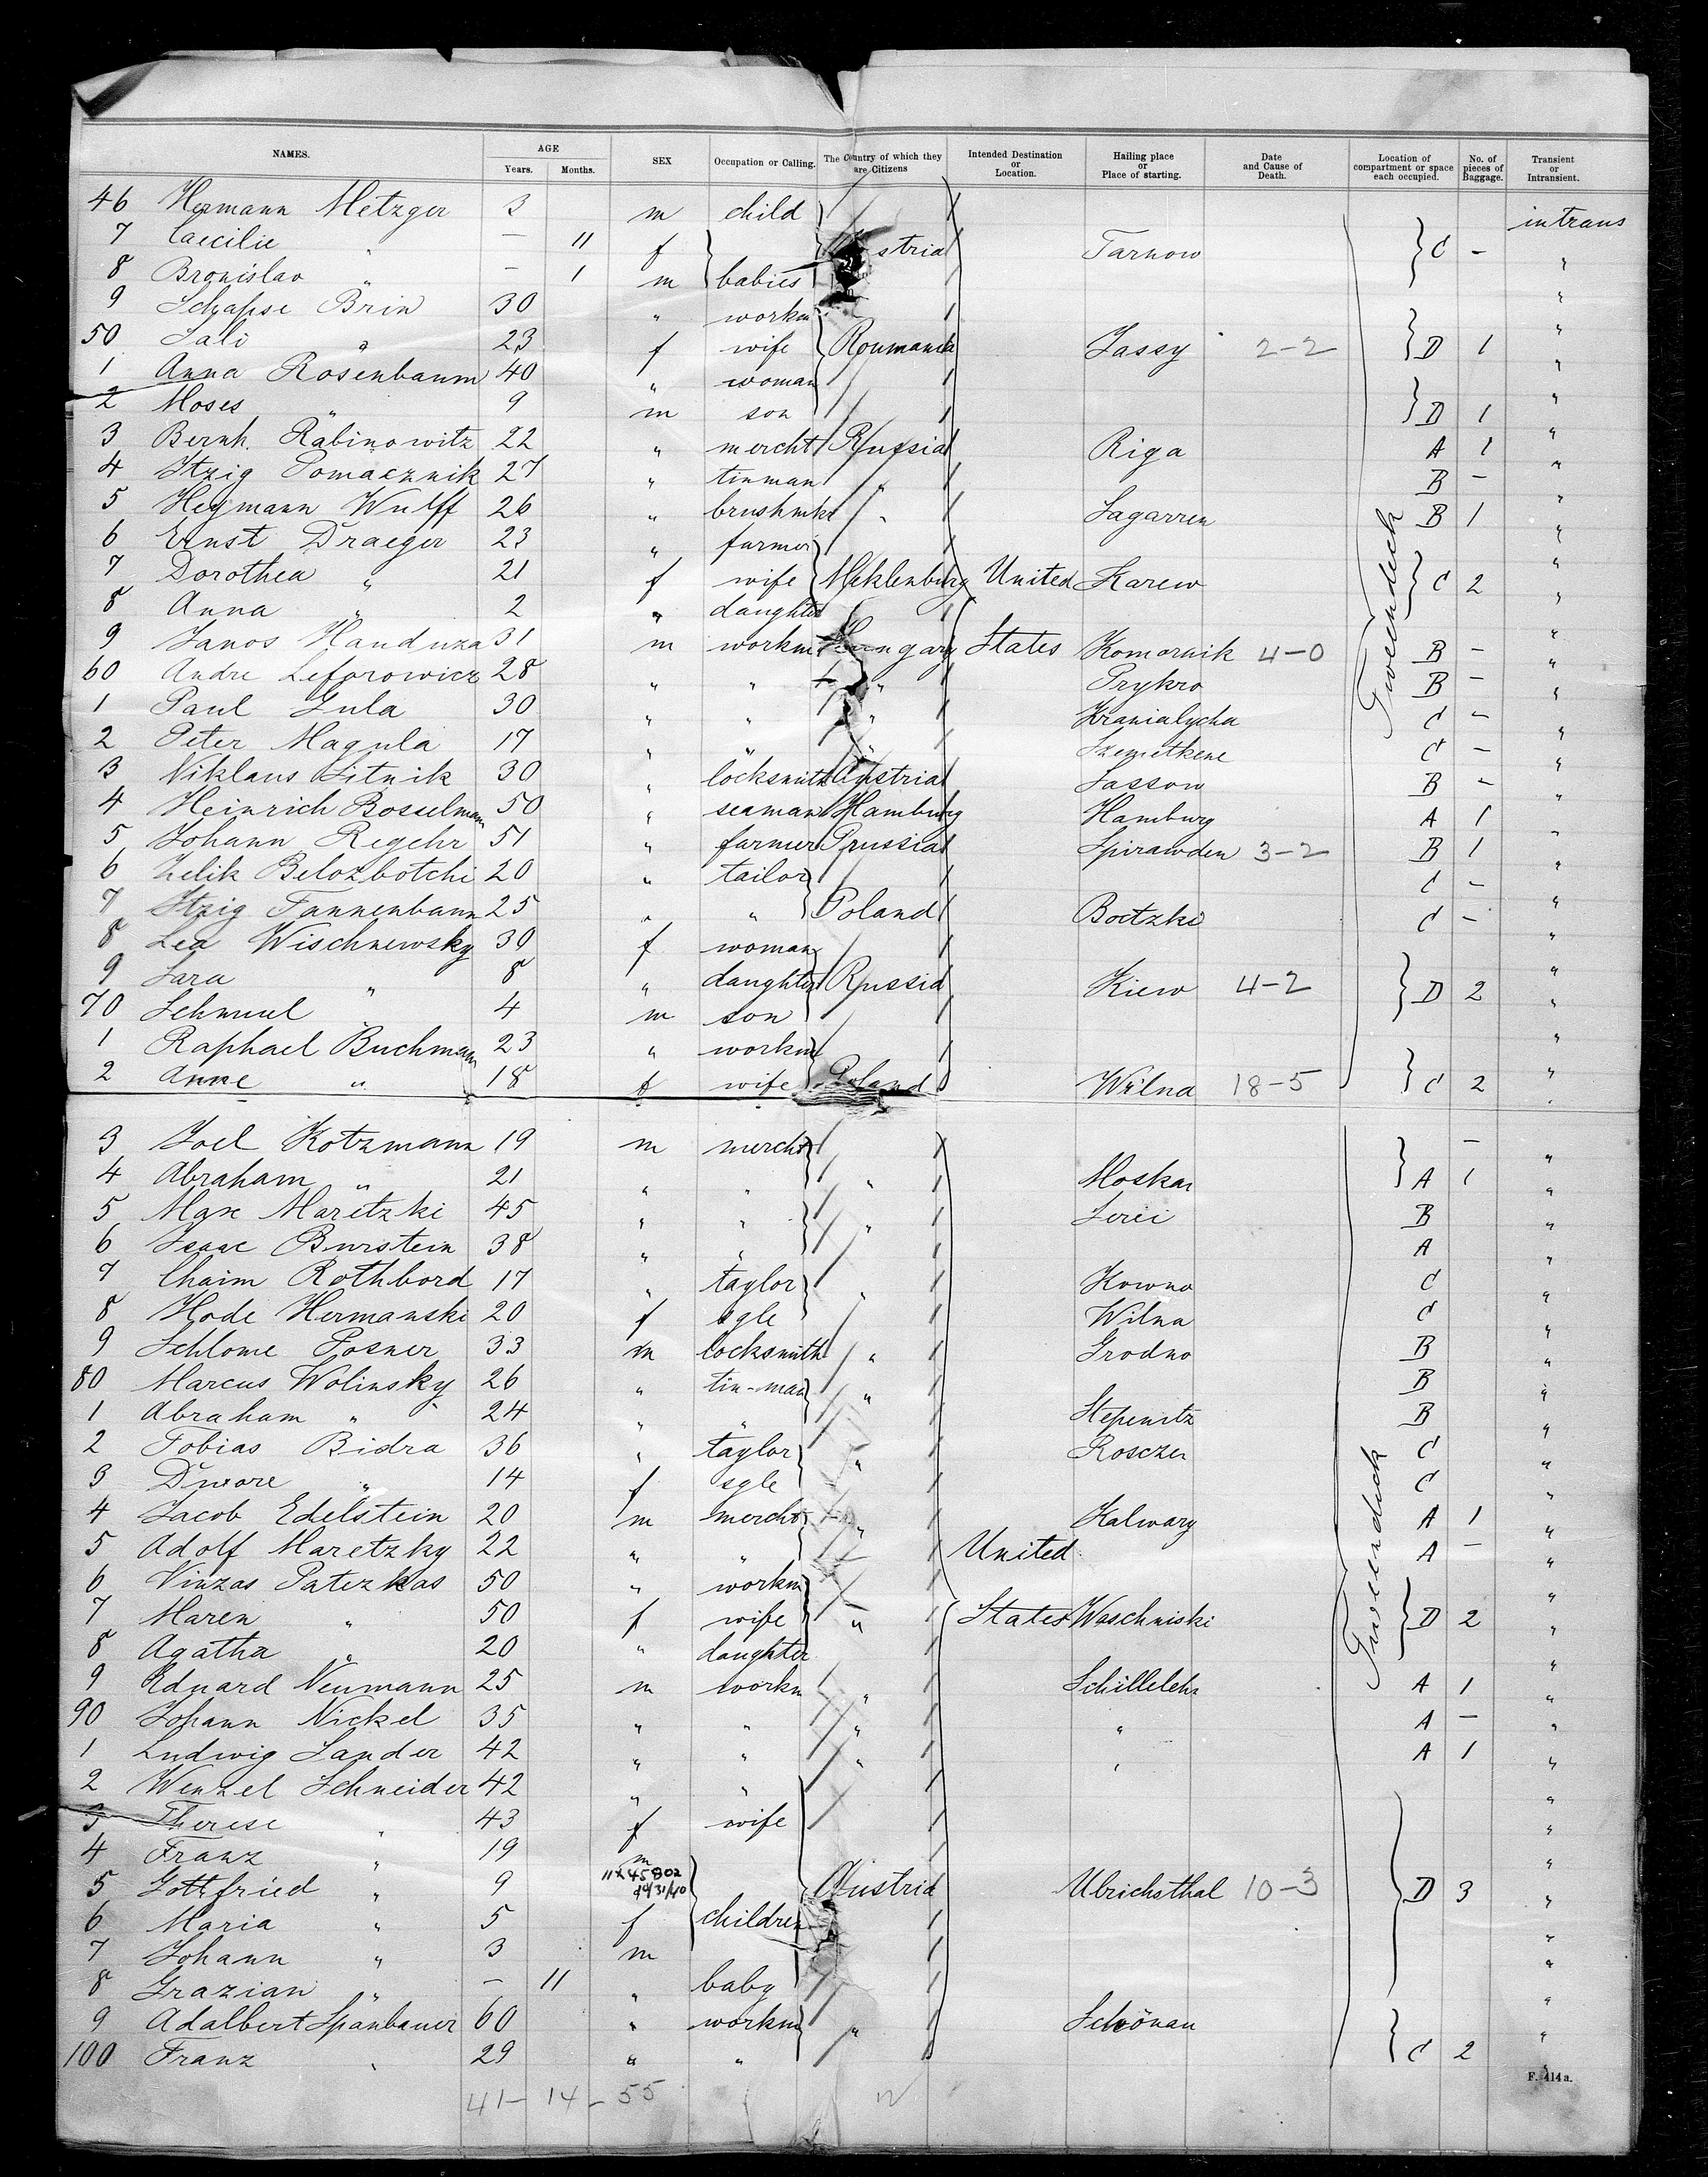 NAMES. AGE Years. Months. SEX Occupation or Calling. The Country of which they are Citizens Intended Destination or Location. Hailing place or Place of starting. Date and Cause of Death. Location of compartment or space each occupied. No. of pieces of Baggage. Transient or Intransient.
46 Hermann Metzger 3 m child intrans
7 Caecilie " — 11 f Tarnow C — "
8 Bronislav " — 1 m babies "
9 Schapse Brin 30 " workm "
50 Sali " 23 f wife Roumania Jassy 2-2 D 1 "
1 Anna Rosenbaum 40 " woman "
2 Moses " 9 m son D 1 "
3 Bernh. Rabinowitz 22 " mercht Russia Riga A 1 "
4 Itzig Pomacznik 27 " tinman " B — "
5 Heymann Wulff 26 " brushmkr " Sagarren B 1 "
6 Ernst Draeger 23 " farmer "
7 Dorothea " 21 f wife Meklenburg United Karew C 2 "
8 Anna " 2 " daughter "
9 Janos Handuza 31 m workm Hungary States Komornik 4-0 B — "
60 Andre Leforowicz 28 " " " Prykro B — "
1 Paul Gula 30 " " " Kranialycha C — "
2 Peter Magula 17 " " " Szemetkene C — "
3 Niklaus Sitnik 30 " locksmith Austria Sassow B — "
4 Heinrich Bosselmann 50 " seaman Hamburg Hamburg A 1 "
5 Johann Regehr 51 " farmer Prussia Spirawden 3-2 B 1 "
6 Zelik Belozbotchi 20 " tailor C — "
7 Itzig Tannenbaum 25 " " Poland Boctzki C — "
8 Lea Wischnewsky 30 f woman "
9 Sara " 8 " daughter Russia Kiew 4-2 D 2 "
70 Schmuel " 4 m son "
1 Raphael Buchmann 23 " workm "
2 Anne " 18 f wife Poland Wilna 18-5 C 2 "
3 Joel Kotzmann 19 m mercht — "
4 Abraham " 21 " " " Moskau A 1 "
5 Max Maretzki 45 " " " Serei B "
6 Isaac Burstein 38 " " A "
7 Chaim Rothbord 17 " taylor " Kowno C "
8 Hode Hermanski 20 f sgle Wilna C "
9 Schlome Posner 33 m locksmith " Grodno B "
80 Marcus Wolinsky 26 " tin-man " B "
1 Abraham " 24 " " Stepenitz B "
2 Tobias Bidra 36 " taylor " Rosczen C "
3 Dwore " 14 f sgle C "
4 Jacob Edelstein 20 m mercht " Kalwary A 1 "
5 Adolf Maretzky 22 " " United A — "
6 Vinzas Patezkas 50 " workm "
7 Maren " 50 f wife " States Waschniski D 2 "
8 Agatha " 20 " daughter "
9 Eduard Neumann 25 m workm " Schillelehn A 1 "
90 Johann Nickel 35 " " " " A — "
1 Ludwig Sander 42 " " " " A 1 "
2 Wenzel Schneider 42 " " "
3 Therese " 43 f wife "
4 Franz " 19 m "
5 Gottfried " 9 Austria Ulrichsthal 10-3 D 3 "
6 Maria " 5 f children "
7 Johann " 3 m "
8 Grazian " — 11 " baby "
9 Adalbert Spanbauer 60 " workm " Schönau "
100 Franz " 29 " " C 2 "
41- 14 - 55
F. 414a.